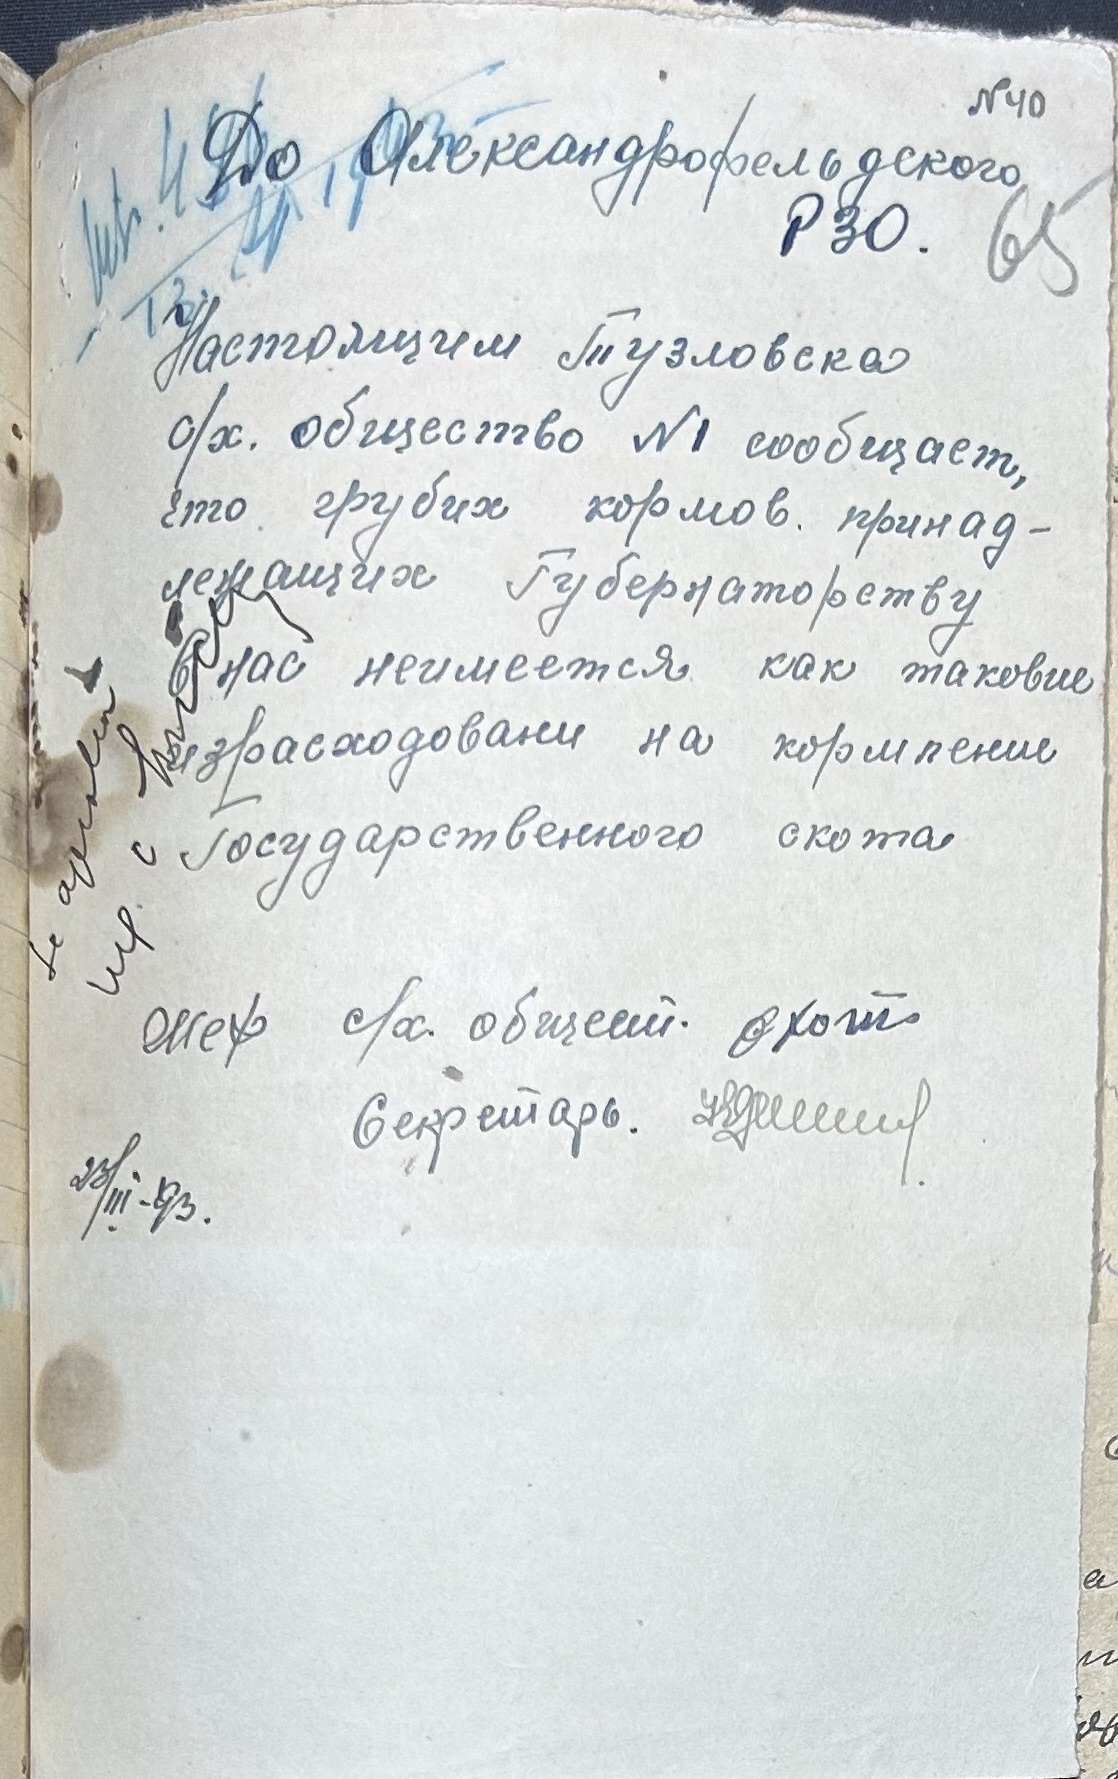 №40
До Олександрофельдского
РЗО.
65
Настоящим Тузловска
с/х. общество №1 сообщает,
что грубих кормов. принад-
лежащих Губернаторству
в нас неимеется как таковие
израсходовани на кормление
Государственного скота
Шеф с/х. общест.
Секретарь.
23/III-43.